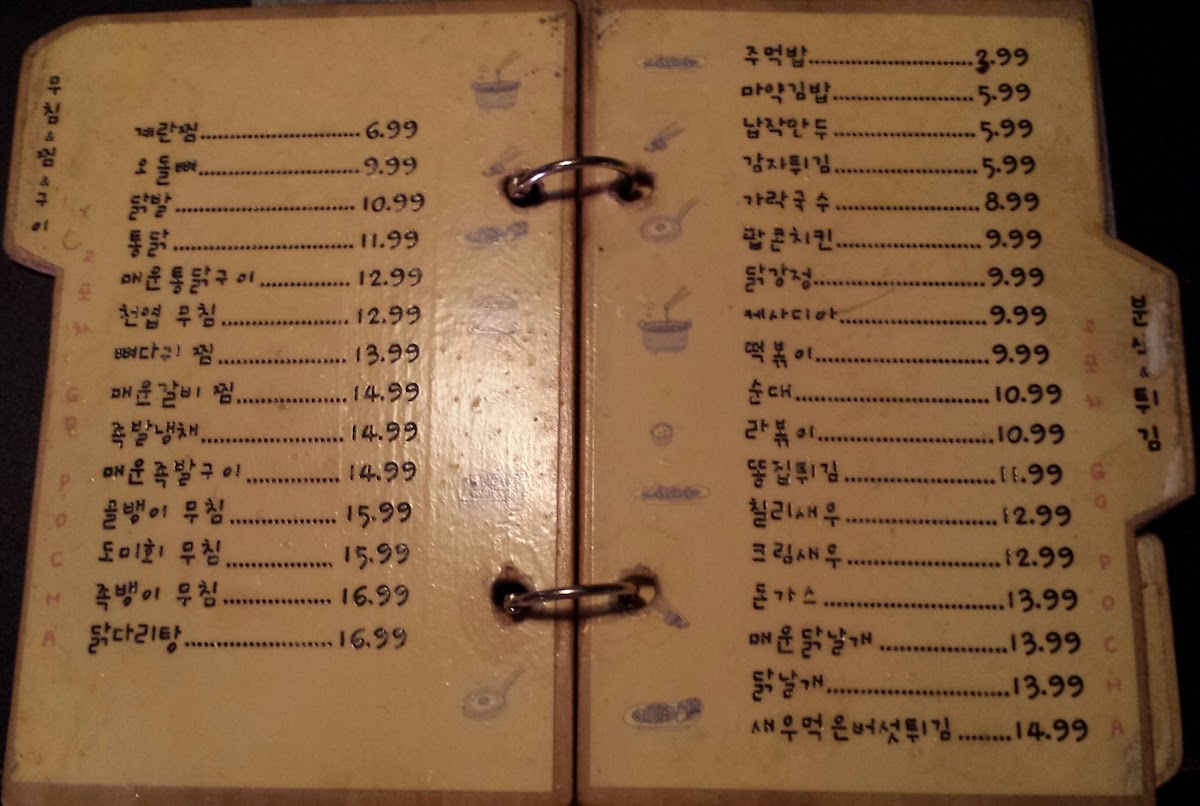 무침&찜&구이
계란찜 6.99
오돌뼈 9.99
닭발 10.99
통닭 11.99
매운통닭구이 12.99
천엽 무침 12.99
뼈다귀 찜 13.99
매운갈비 찜 14.99
족발냉채 14.99
매운족발구이 14.99
골뱅이 무침 15.99
도미회 무침 15.99
족뱅이 무침 16.99
닭다리탕 16.99
POCHA
주먹밥 3.99
마약김밥 5.99
납작만두 5.99
감자튀김 5.99
가락국수 8.99
팝콘치킨 9.99
닭강정 9.99
께사디아 9.99
떡볶이 9.99
순대 10.99
라볶이 10.99
똥집튀김 11.99
칠리새우 12.99
크림새우 12.99
돈가스 13.99
매운닭날개 13.99
닭날개 13.99
새우먹은버섯튀김 14.99
튀김
POCHA